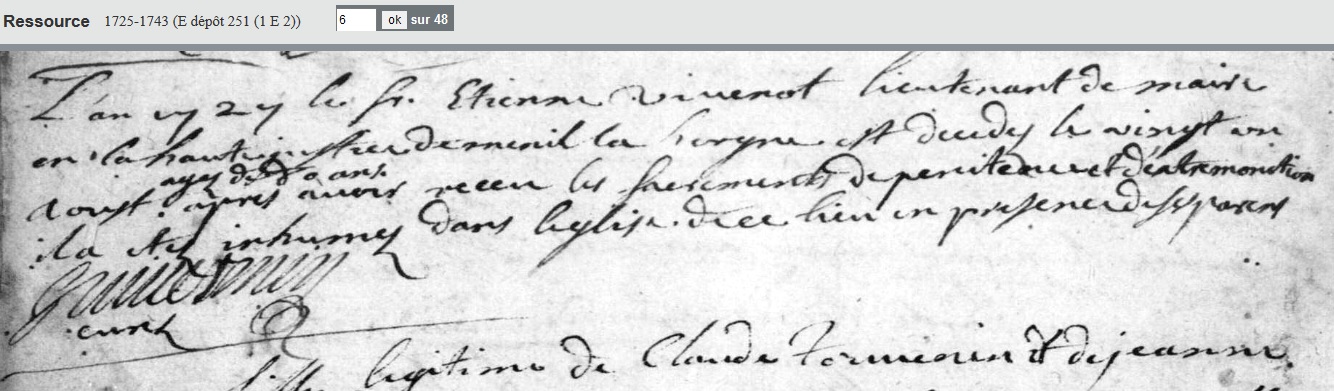 Ressource 1725-1743 (E dépôt 251 (1 E 2)) 6 ok sur 48
L'an 1727 le sr. Etienne Vivenot lieutenant de maire
en la haute justice demenil la horgne est decedé le vingt un
ayez de ans
d'oust après avoir receu les sacrements de penitence et d'extremonction
il a étéz inhumez dans leglise de ce lieu en presence de ses parens
curé
fille legitime de Claude et de jeanne